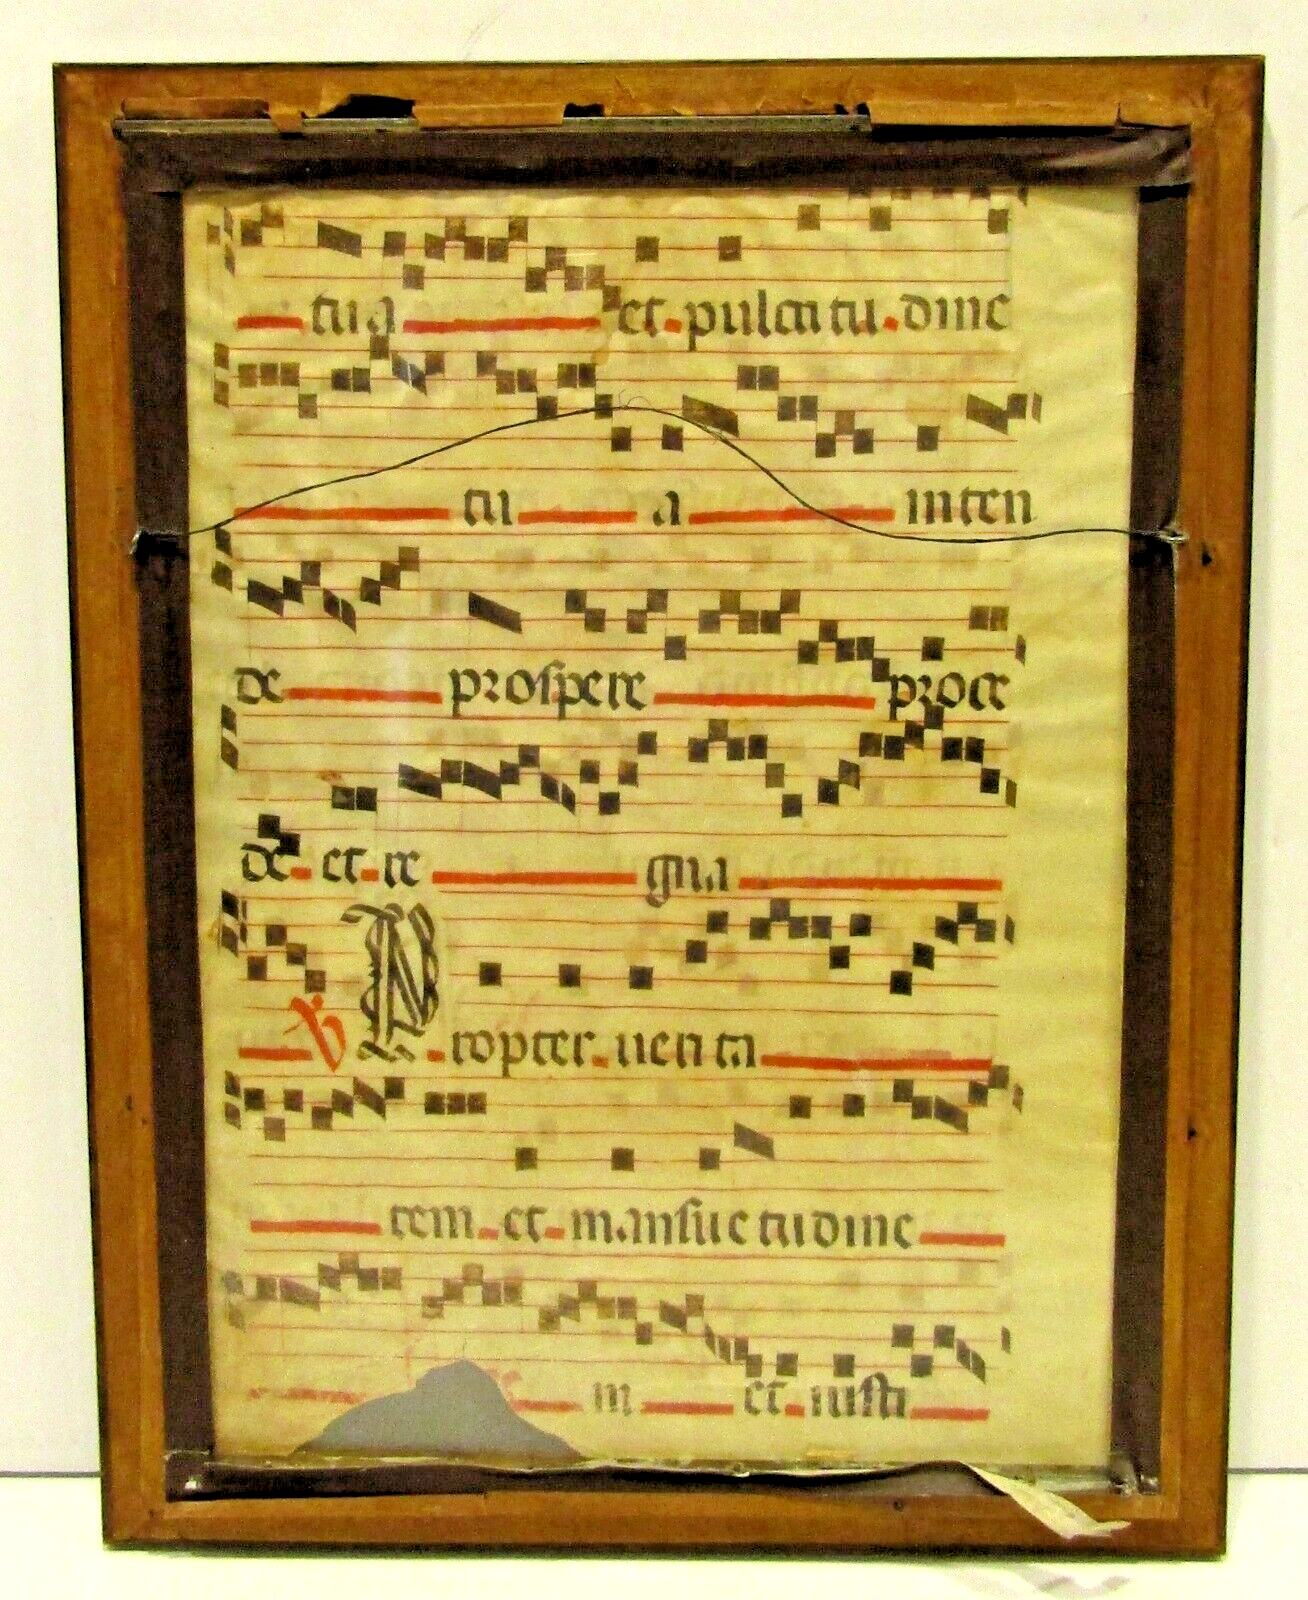 tua et pulcritudine
tu a inten
de prospere proce
de et re gna
℣ Propter ueri ta
tem et mansuetudine
m et iusti